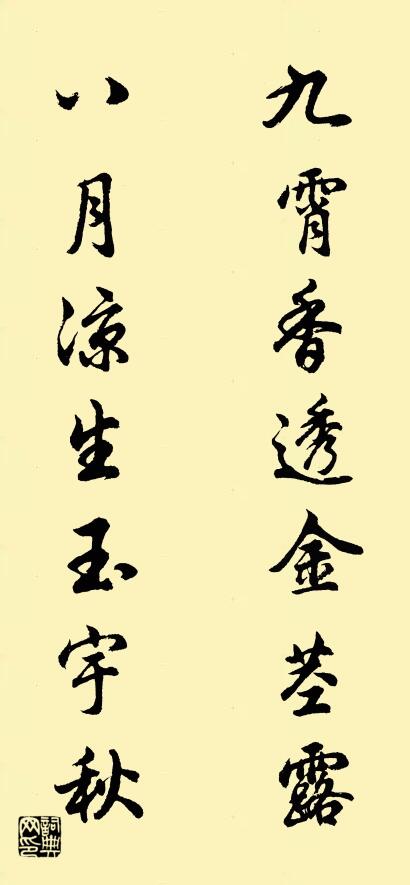 九霄香透金茎露
八月凉生玉宇秋
詞典网印